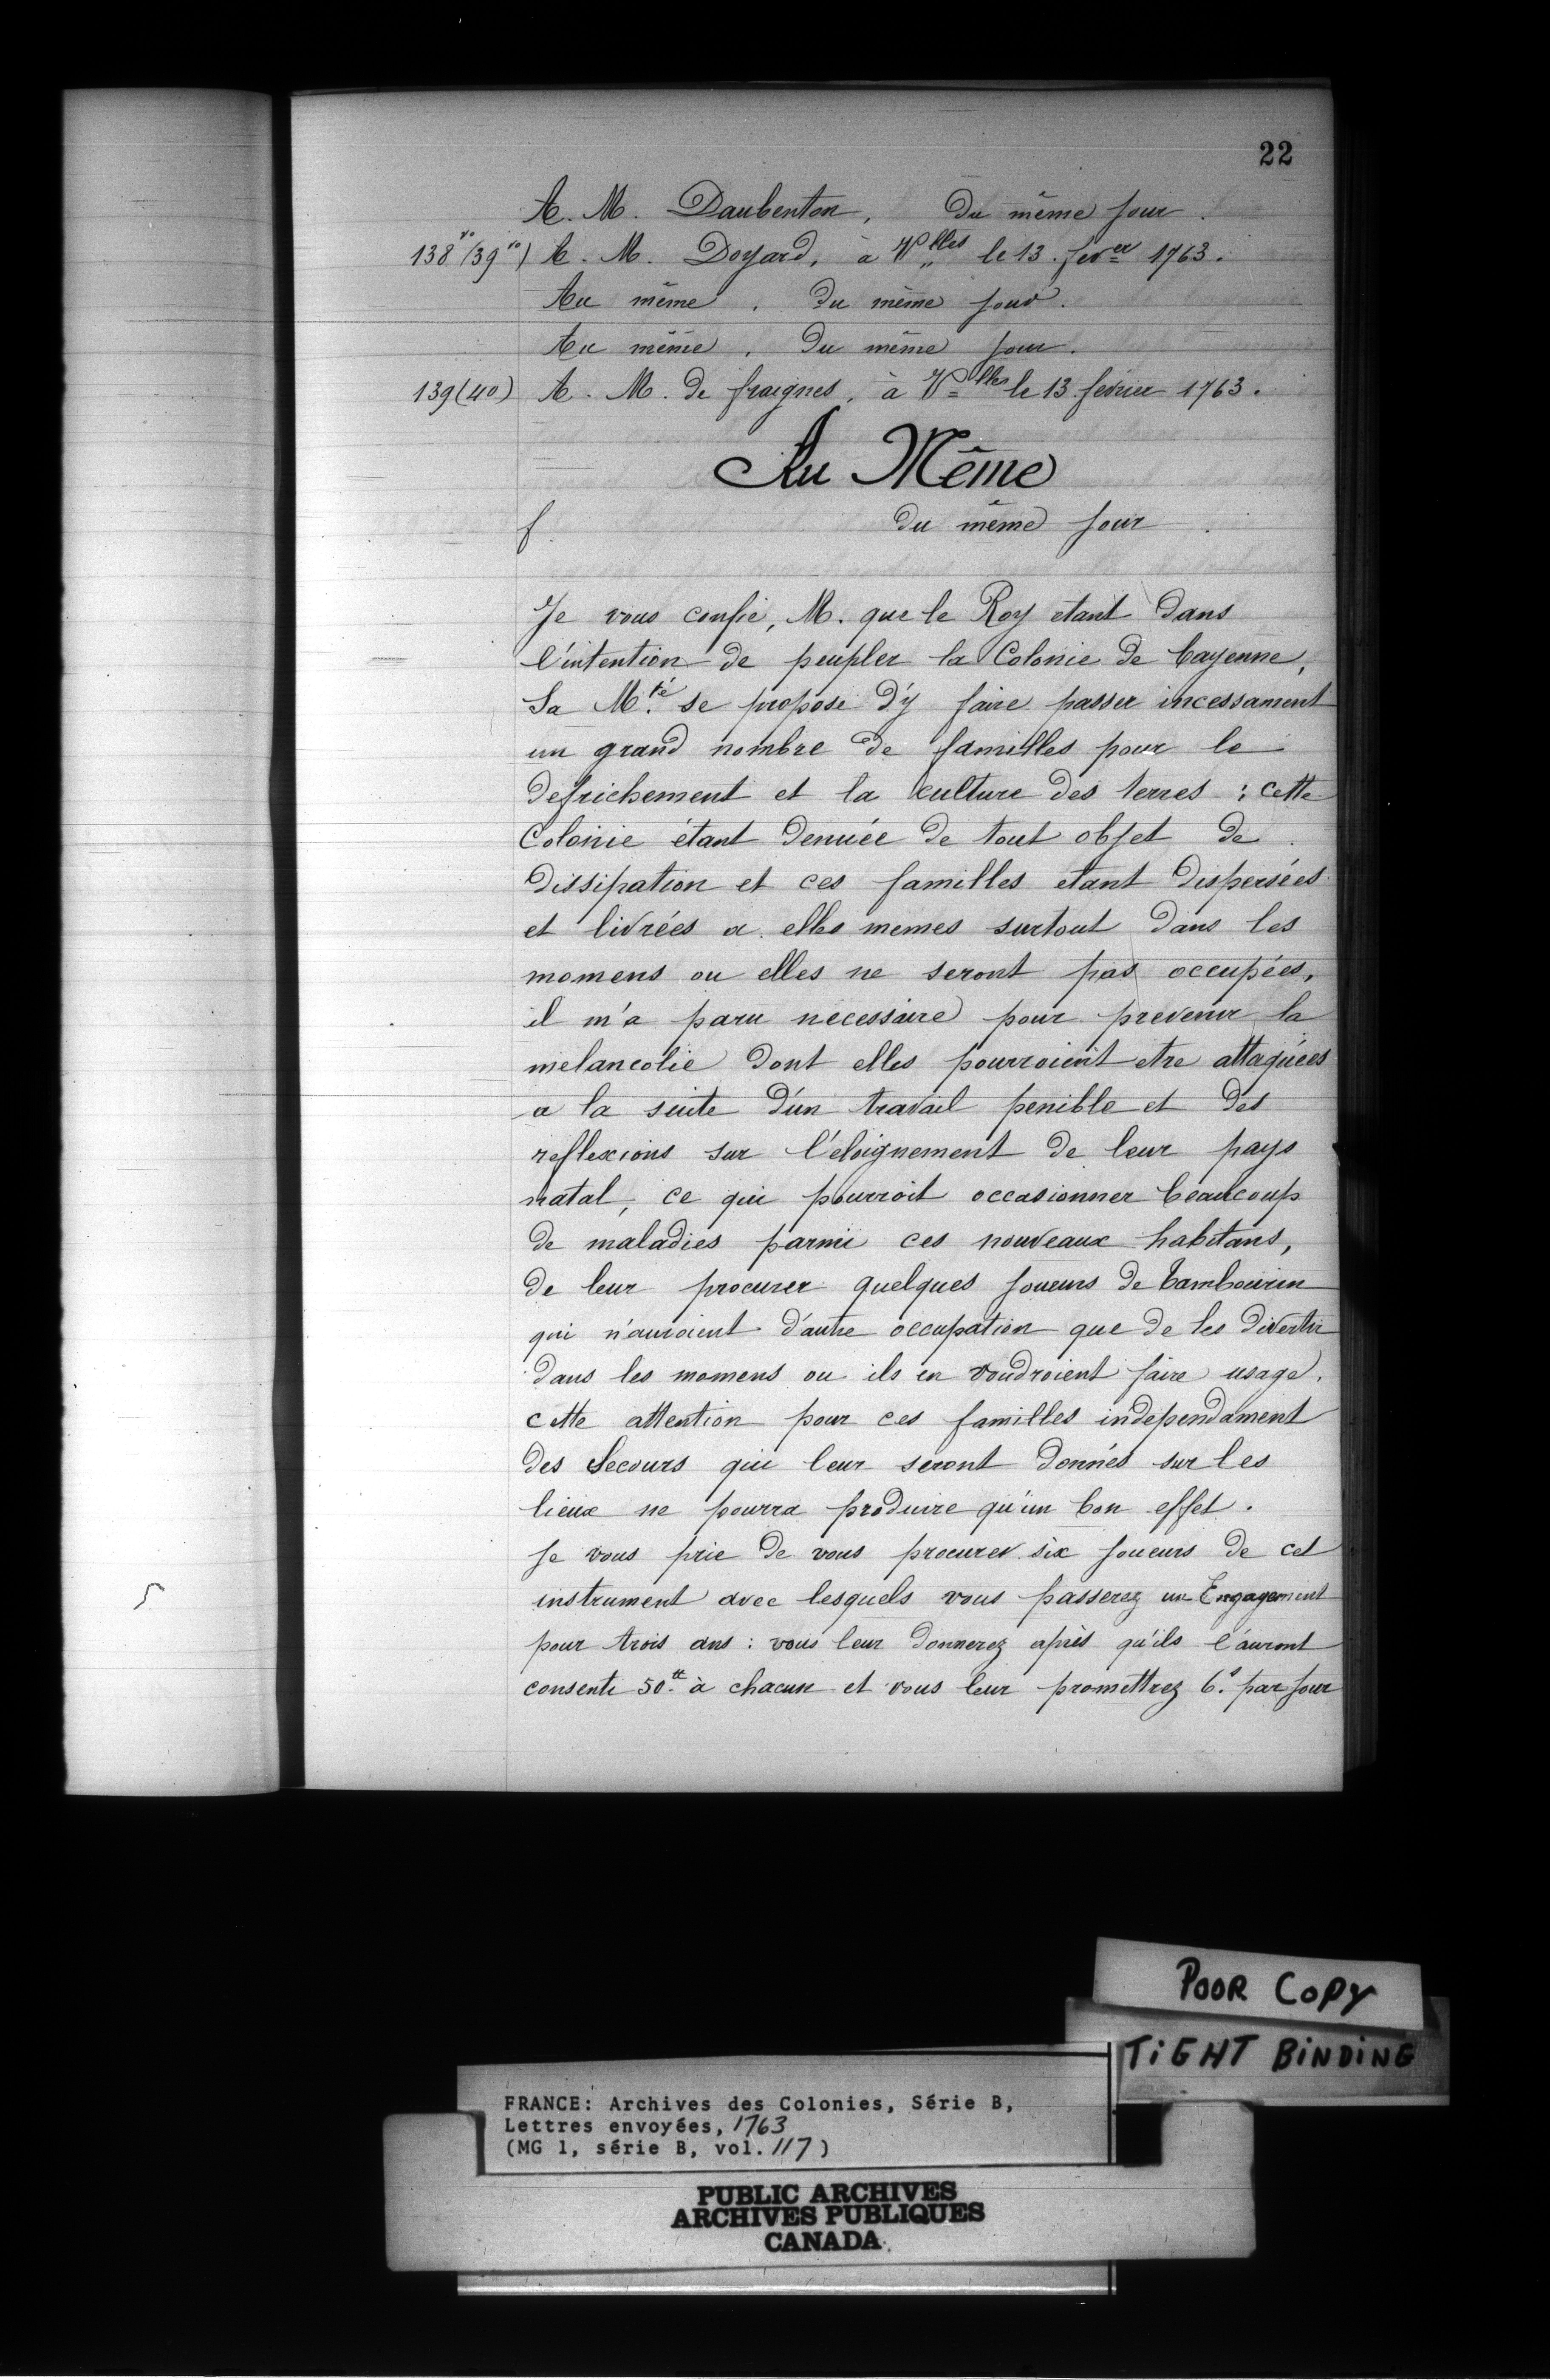 22
A. M. Daubenton, Du même jour.
138 vo (39 vo) A. M. Doyard, à Vlles le 13 fevrer 1763.
Au même, Du même jour.
Au même, Du même jour.
139 (40) A. M. de fraignes, à Vlles le 13 fevrier 1763.
Au Même
f. du même jour.
Je vous confie, M. que le Roy etant dans
l'intention de peupler la Colonie de Cayenne,
Sa Mté se propose d'y faire passer incessament
un grand nombre de familles pour le
defrichement et la culture des terres : cette
Colonie étant denuée de tout objet de
dissipation et ces familles etant dispersées
et livrées a elles memes surtout dans les
momens ou elles ne seront pas occupées,
il m'a paru necessaire pour prevenir la
melancolie dont elles pourroient etre attaquées
a la suite d'un travail penible et des
reflexions sur l'eloignement de leur pays
natal, ce qui pourroit occasionner beaucoup
de maladies parmi ces nouveaux habitans,
de leur procurer quelques joueurs de tambourin
qui n'auroient d'autre occupation que de les divertir
dans les momens ou ils en voudroient faire usage.
cette attention pour ces familles independament
des Secours qui leur seront donnés sur les
lieux ne pourra produire qu'un bon effet.
Je vous prie de vous procurer six joueurs de cet
instrument avec lesquels vous passerez un Engagement
pour trois ans : vous leur donnerez après qu'ils l'auront
consenti 50.tt à chacun et vous leur promettrez 6.s par jour
POOR COPY
TIGHT BINDING
FRANCE: Archives des Colonies, Série B,
Lettres envoyées, 1763
(MG 1, série B, vol. 117)
PUBLIC ARCHIVES
ARCHIVES PUBLIQUES
CANADA